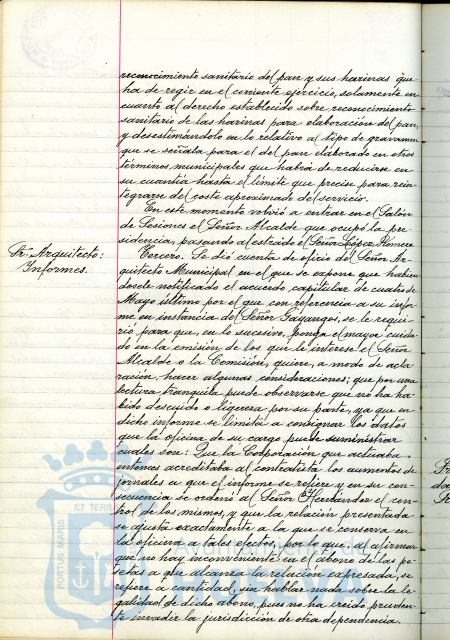 reconocimiento sanitario del pan y sus harinas que
ha de regir en el corriente ejercicio, solamente en
cuanto al derecho establecido sobre reconocimiento
sanitario de las harinas para elaboración del pan,
y desestimándolo en lo relativo al tipo de gravamen
que se señala para el del pan elaborado en otros
términos municipales que habrá de reducirse en
su cuantía hasta el límite que precise para rein
tegrarse del coste aproximado del servicio.
En este momento volvió a entrar en el Salón
de Sesiones el Señor Alcalde que ocupó la pre-
sidencia, pasando al estrado el Señor López Romero.
Sr. Arquitecto:
Informes.
Tercero. Se dió cuenta de oficio del Señor Ar-
quitecto Municipal en el que se expone que habien
dosele notificado el acuerdo capitular de cuatro de
Mayo último por el que con referencia a su infor
me en instancia del Señor Gayangos, se le requi-
rió para que, en lo sucesivo, ponga el mayor cuida-
do en la emisión de los que le interese el Señor
Alcalde o la Comisión, quiere, a modo de acla
ración, hacer algunas consideraciones; que por una
lectura tranquila puede observarse que no ha ha-
bido descuido o ligereza por su parte, ya que en
dicho informe se limitó a consignar los datos
que la oficina de su cargo puede suministrar
cuales son: Que la Corporación que actuaba
entonces acreditaba al contratista los aumentos de
jornales a que el informe se refiere y en su con-
secuencia se ordenó al Señor Hernández el con-
trol de los mismos, y que la relación presentada
se ajusta exactamente a la que se conserva en
la oficina a tales efectos, por lo que al afirmar
que no hay inconveniente en el abono de las pe-
setas a que alcanza la relación expresada, se
refiere a cantidad, sin hablar nada sobre la le-
galidad de dicho abono, pues no ha creido pruden-
te invadir la jurisdicción de otra dependencia.
ET TERR
PORTUS MARIS
Ayuntamiento de
HUELVA